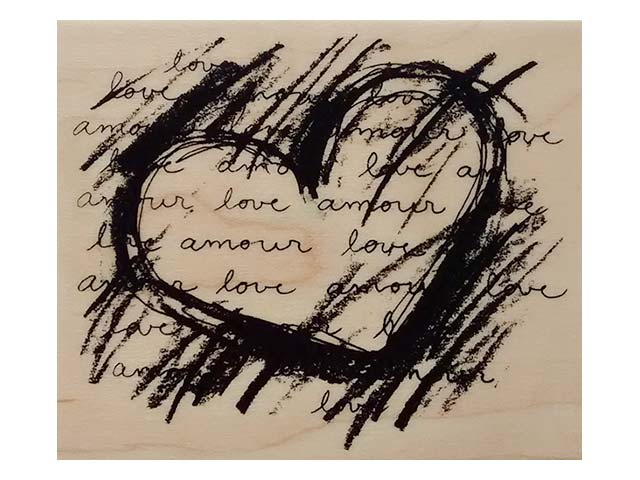 love
love amour love
amour amour love
love amour love am
amour love amour love
love amour love
amour love amour love
love
amour amour
love